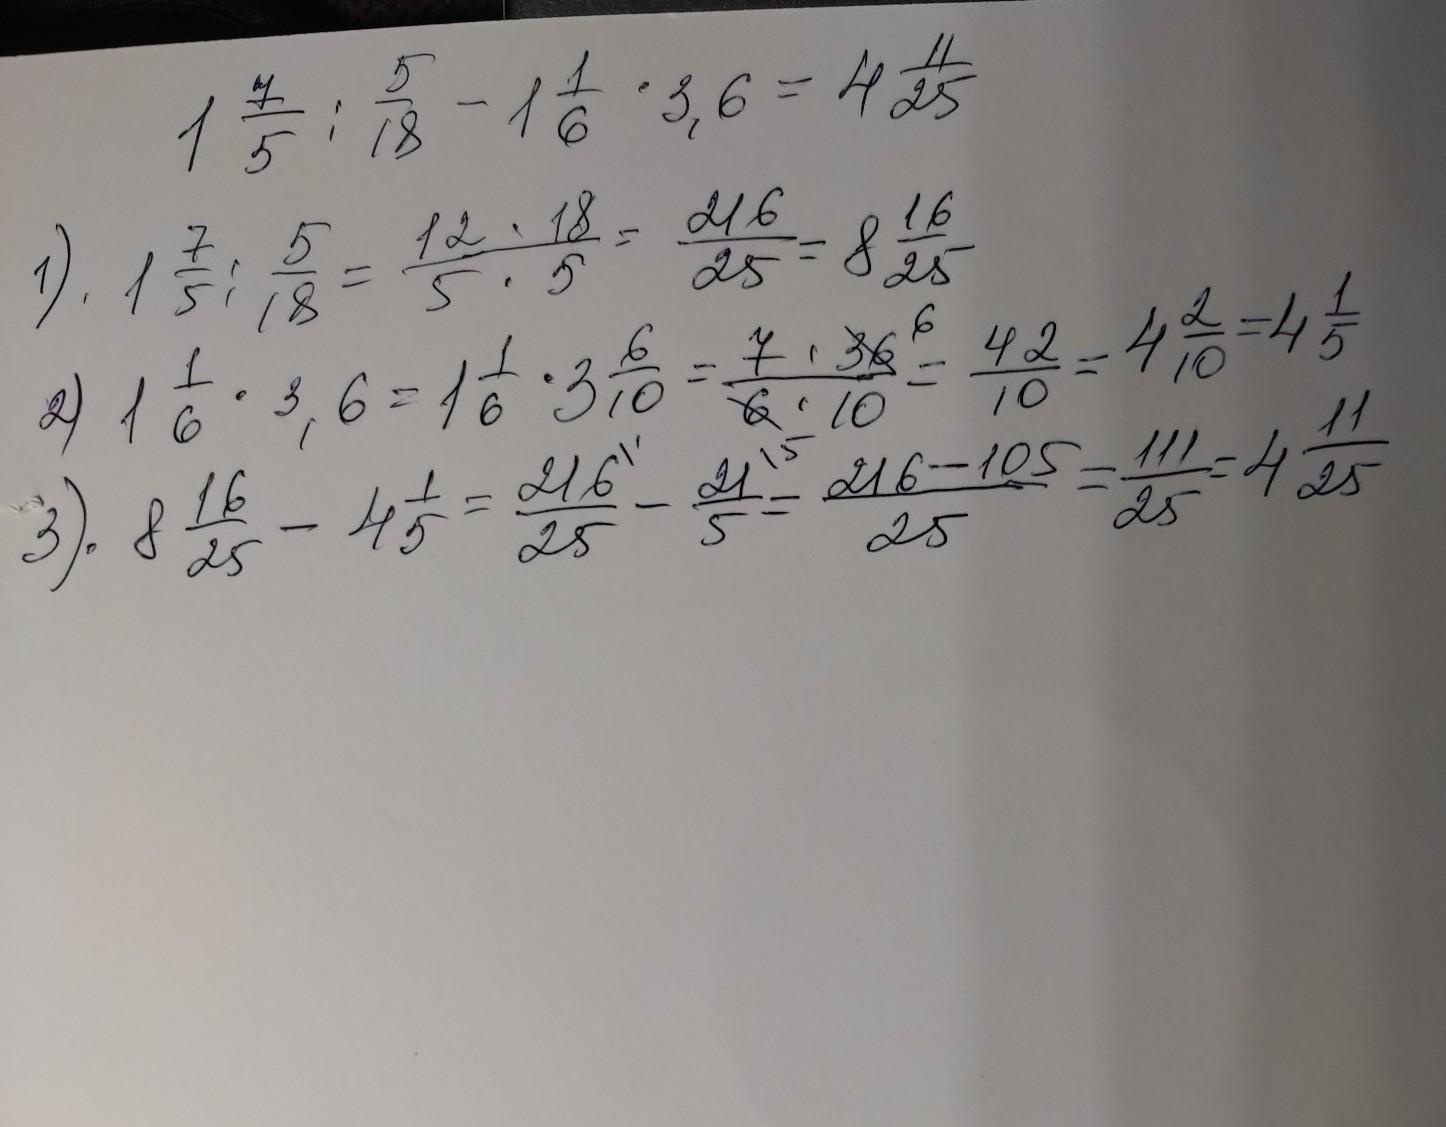 1 7/5 : 5/18 - 1 1/6 · 3,6 = 4 11/25
1). 1 7/5 : 5/18 = 12 · 18/5 · 5 = 216/25 = 8 16/25
2) 1 1/6 · 3,6 = 1 1/6 · 3 6/10 = 7 · 36 6/6 · 10 = 42/10 = 4 2/10 = 4 1/5
3). 8 16/25 - 4 1/5 = 216\1/25 - 21\5/5 = 216-105/25 = 111/25 = 4 11/25